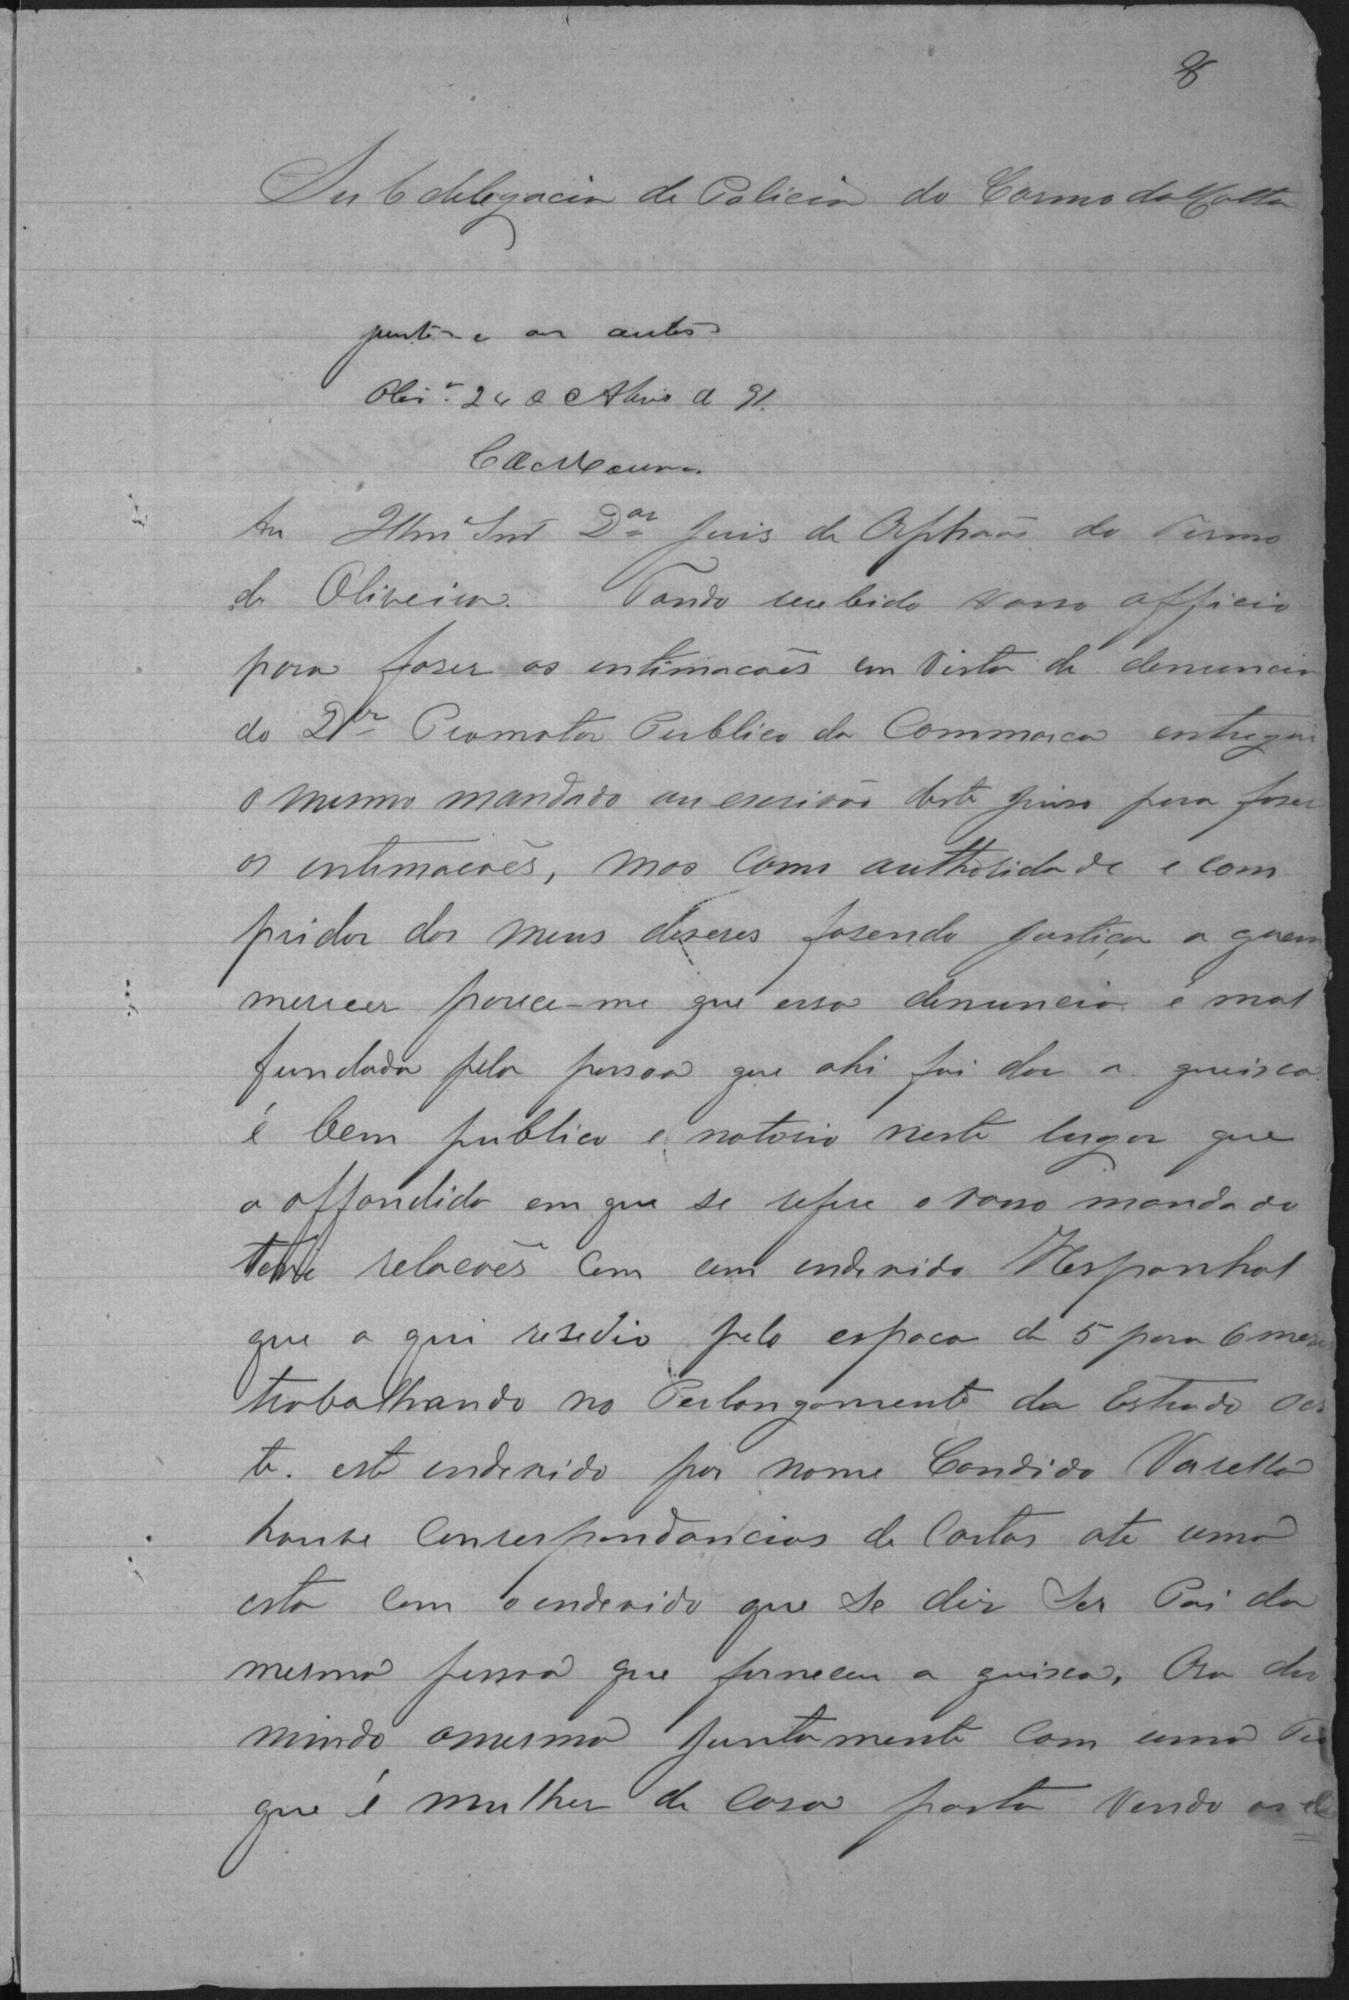 8
Subdelegacia de Policia do Carmo da Matta
junte-se aos autos
Olivª 24 de Abril de 91.
Ao Illmº Snr Dor juis de Orphaõs do Termo
de Oliveira. Tando recebido vosso officio
para faser as entimacoẽs em vista da denuncia
do Dor Promotor Publico da Commarca entreguei
o mesmo mandado au escrivaõ deste juiso para faser
as entimacoẽs, mas como authoridade e com
pridor dos meus deveres fasendo justiça a quem
merecer parece-me que essa denuncia é mal
fundada pela pessoa que ahi foi dar a queisca
é bem publico e notorio neste lugar que
a offandida em que se refere o vosso mandado
teve relacoẽs com um enderido Hespanhol
que a qui resedio pelo espaca de 5 para 6 mese
trabalhando no Perlongamento da Estrada oes
te. este enderido por nome Candido Varella
houve conrespondancias de Cartas ate uma
esta com o enderido que se diz ser Pai da
mesma pessoa que forneceu a queisca, Ora dor
mindo a mesma juntamente com uma Tia
que é mulher de casa porta vendo as